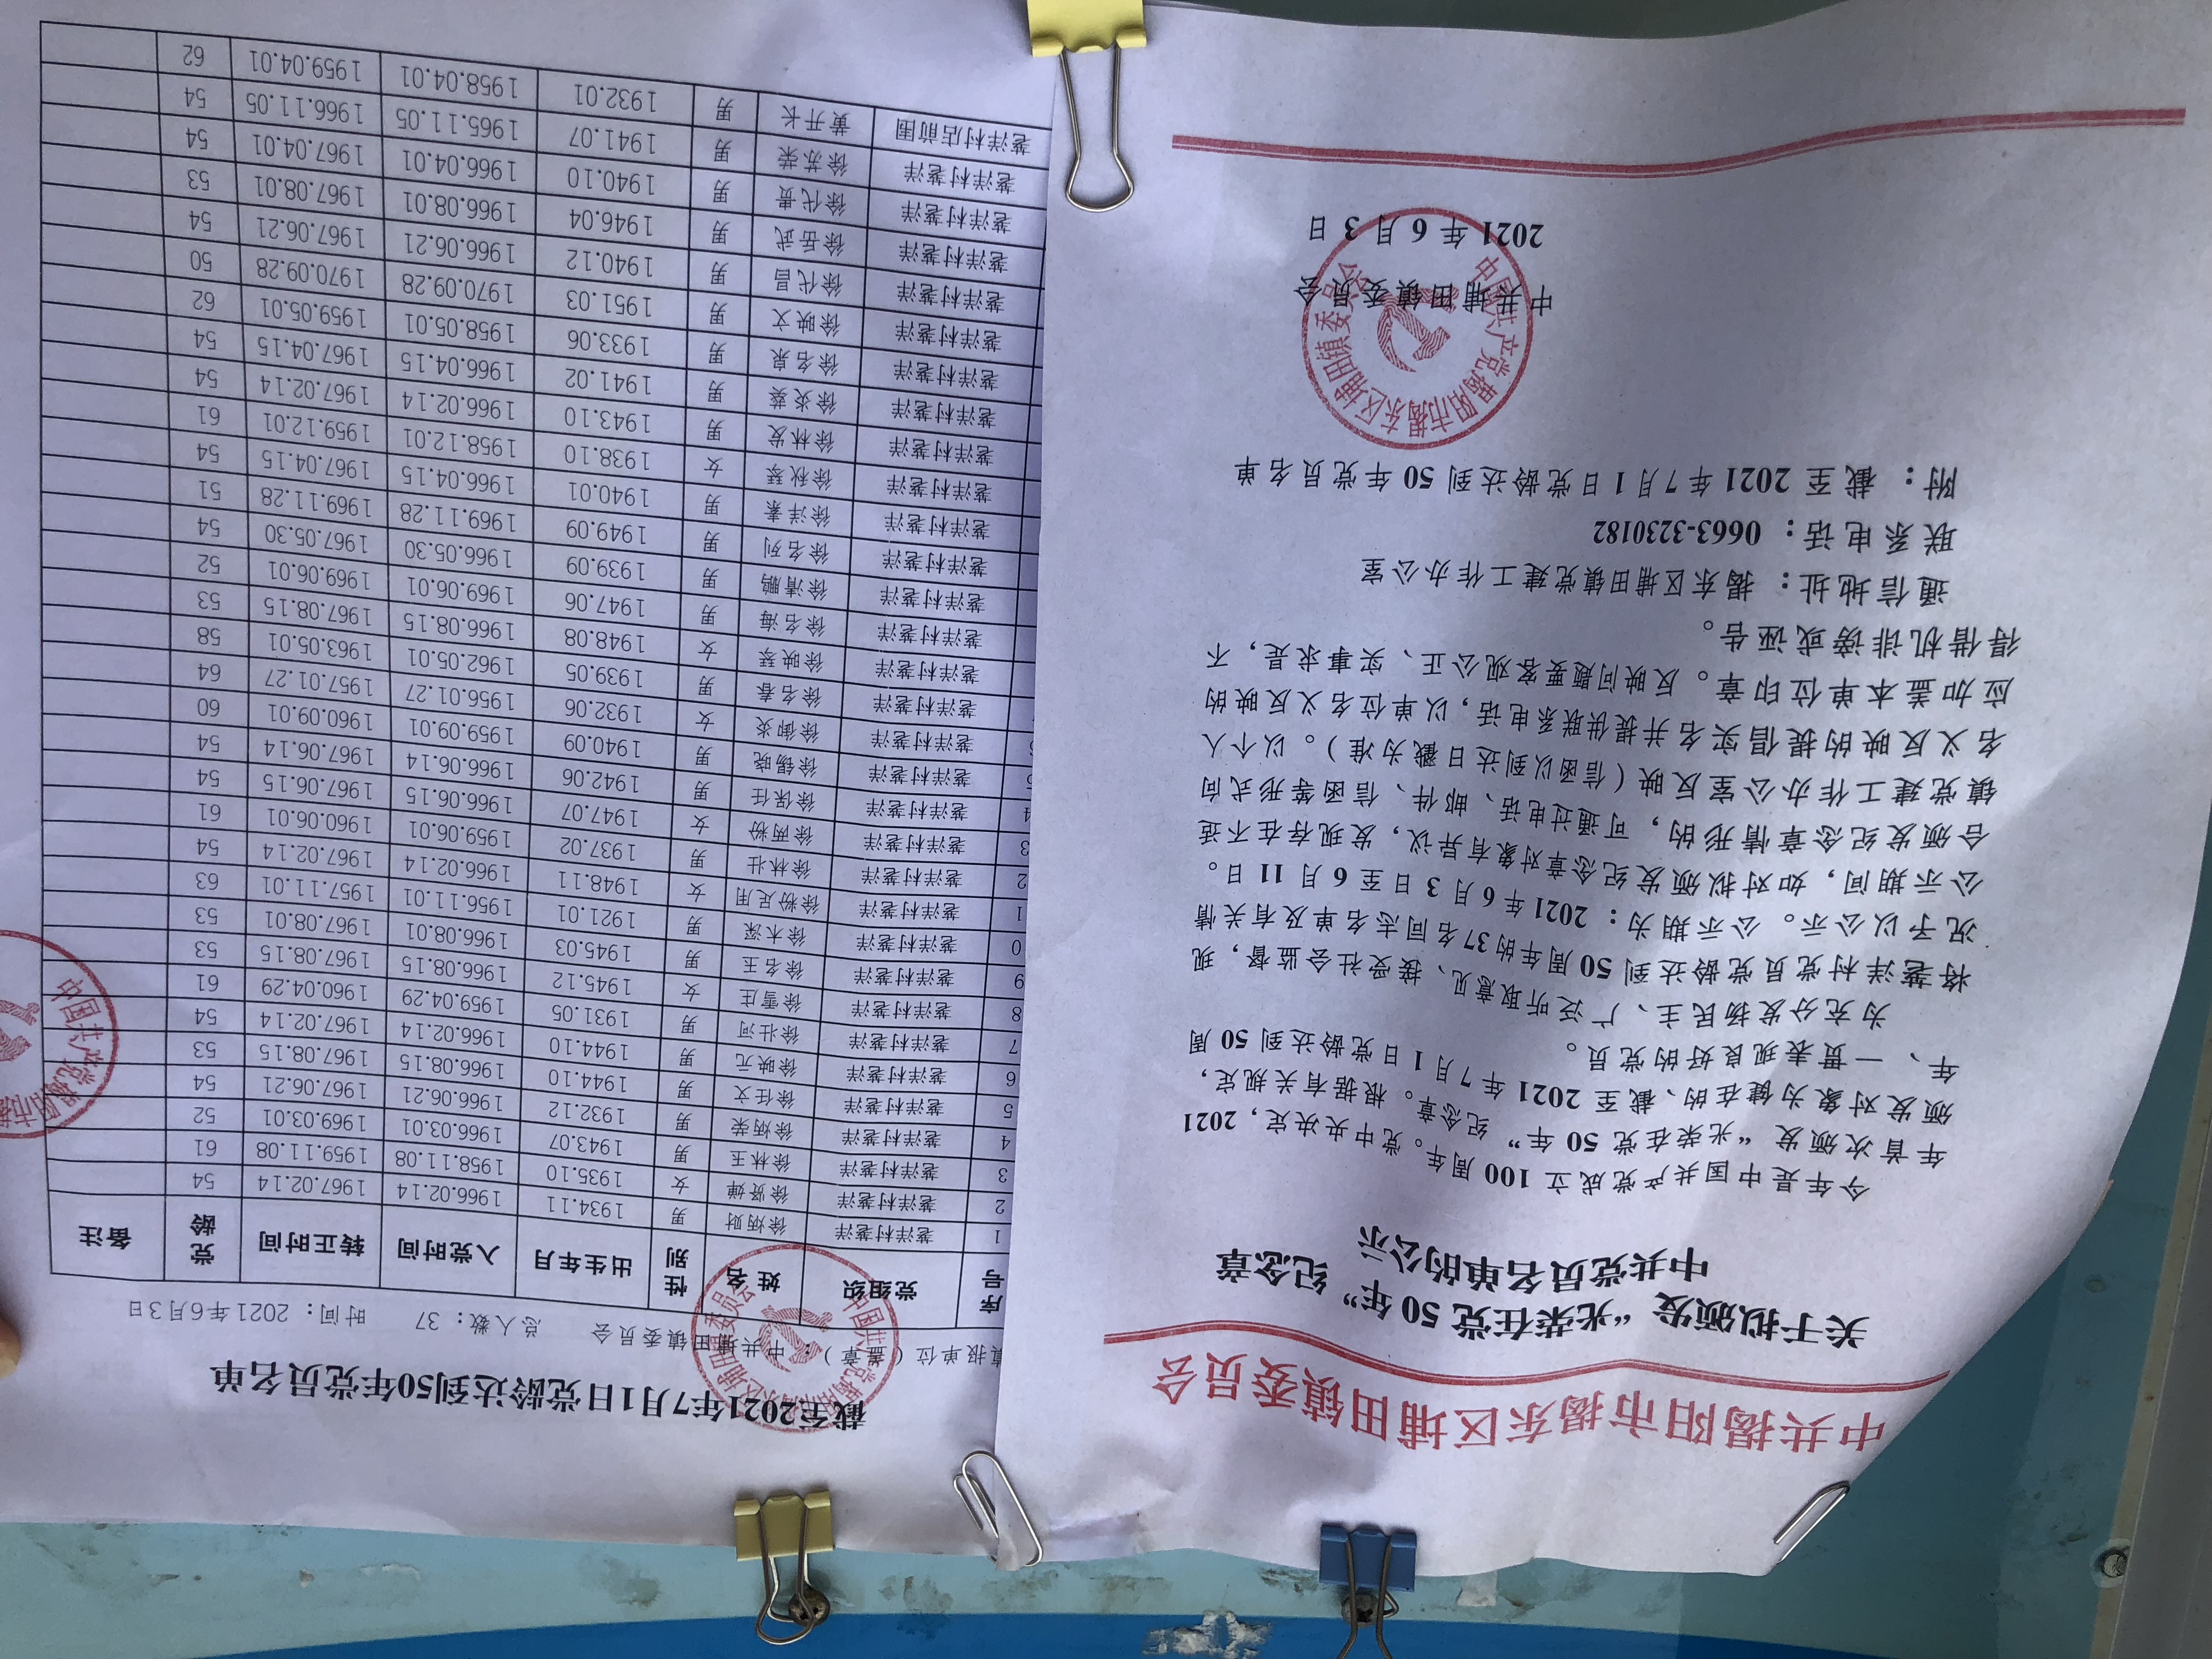 中共揭阳市揭东区埔田镇委员会
关于拟颁发“光荣在党 50 年”纪念章
中共党员名单的公示
今年是中国共产党成立 100 周年。党中央决定，2021
年首次颁发“光荣在党 50 年”纪念章。根据有关规定，
颁发对象为健在的、截至 2021 年 7 月 1 日党龄达到 50 周
年、一贯表现良好的党员。
为充分发扬民主、广泛听取意见、接受社会监督，现
将荖洋村党员党龄达到 50 周年的37名同志名单及有关情
况予以公示。公示期为：2021 年 6 月 3 日至 6 月 11 日。
公示期间，如对拟颁发纪念章对象有异议，发现存在不适
合颁发纪念章情形的，可通过电话、邮件、信函等形式向
镇党建工作办公室反映（信函以到达日戳为准）。以个人
名义反映的提倡实名并提供联系电话，以单位名义反映的
应加盖本单位印章。反映问题要客观公正、实事求是，不
得借机诽谤或诬告。
通信地址：揭东区埔田镇党建工作办公室
联系电话：0663-3230182
附：截至 2021 年 7 月 1 日党龄达到 50 年党员名单
中共埔田镇委员会
2021 年 6 月 3 日
中国共产党揭阳市揭东区埔田镇委员会
截至2021年7月1日党龄达到50年党员名单
填报单位（盖章）：中共埔田镇委员会 总人数：37 时间：2021年6月3日
序号 党组织 姓名 性别 出生年月 入党时间 转正时间 党龄 备注
1 荖洋村荖洋 徐炳财 男 1934.11 1966.02.14 1967.02.14 54
2 荖洋村荖洋 徐贤婵 女 1935.10 1958.11.08 1959.11.08 61
3 荖洋村荖洋 徐林王 男 1943.07 1966.03.01 1969.03.01 52
4 荖洋村荖洋 徐炳荣 男 1932.12 1966.06.21 1967.06.21 54
5 荖洋村荖洋 徐任文 男 1944.10 1966.08.15 1967.08.15 53
6 荖洋村荖洋 徐映元 男 1944.10 1966.02.14 1967.02.14 54
7 荖洋村荖洋 徐壮河 男 1931.05 1959.04.29 1960.04.29 61
8 荖洋村荖洋 徐雪庄 女 1945.12 1966.08.15 1967.08.15 53
9 荖洋村荖洋 徐名王 男 1945.03 1966.08.01 1967.08.01 53
0 荖洋村荖洋 徐木深 男 1921.01 1956.11.01 1957.11.01 63
1 荖洋村荖洋 徐粉足用 女 1948.11 1966.02.14 1967.02.14 54
2 荖洋村荖洋 徐林壮 男 1937.02 1959.06.01 1960.06.01 61
3 荖洋村荖洋 徐两粉 女 1947.07 1966.06.15 1967.06.15 54
4 荖洋村荖洋 徐保任 男 1942.06 1966.06.14 1967.06.14 54
荖洋村荖洋 徐锡晓 男 1940.09 1959.09.01 1960.09.01 60
荖洋村荖洋 徐御炎 女 1932.06 1956.01.27 1957.01.27 64
荖洋村荖洋 徐名春 男 1939.05 1962.05.01 1963.05.01 58
荖洋村荖洋 徐映琴 女 1948.08 1966.08.15 1967.08.15 53
荖洋村荖洋 徐名海 男 1947.06 1969.06.01 1969.06.01 52
荖洋村荖洋 徐清鹏 男 1939.09 1966.05.30 1967.05.30 54
荖洋村荖洋 徐名列 男 1949.09 1969.11.28 1969.11.28 51
荖洋村荖洋 徐洋素 男 1940.01 1966.04.15 1967.04.15 54
荖洋村荖洋 徐秋琴 女 1938.10 1958.12.01 1959.12.01 61
荖洋村荖洋 徐林发 男 1943.10 1966.02.14 1967.02.14 54
荖洋村荖洋 徐炎葵 男 1941.02 1966.04.15 1967.04.15 54
荖洋村荖洋 徐名泉 男 1933.06 1958.05.01 1959.05.01 62
荖洋村荖洋 徐映文 男 1951.03 1970.09.28 1970.09.28 50
荖洋村荖洋 徐代昌 男 1940.12 1966.06.21 1967.06.21 54
荖洋村荖洋 徐岳武 男 1946.04 1966.08.01 1967.08.01 53
荖洋村荖洋 徐代贵 男 1940.10 1966.04.01 1967.04.01 54
荖洋村荖洋 徐苏荣 男 1941.07 1965.11.05 1966.11.05 54
荖洋村店前围 黄开长 男 1932.01 1958.04.01 1959.04.01 62